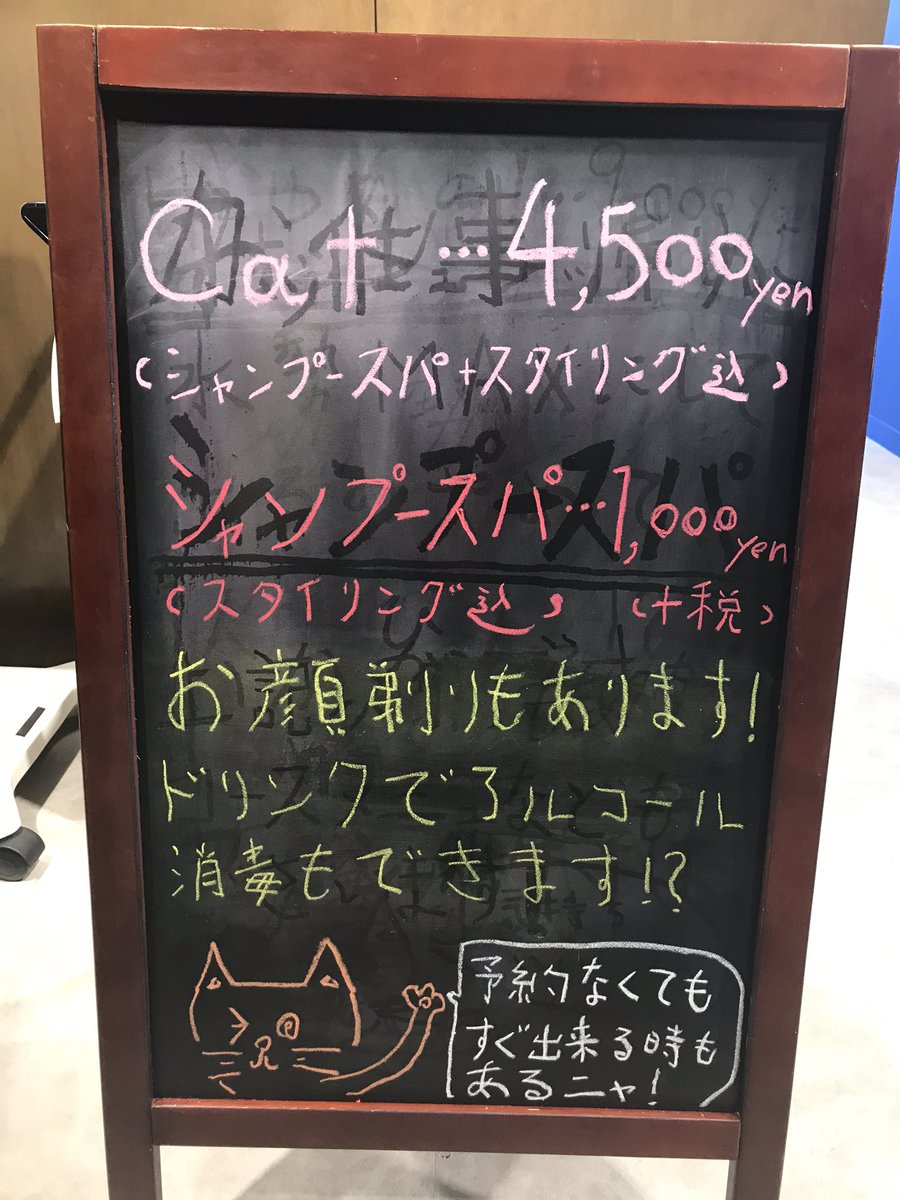 Cat …4,500yen
(シャンプースパ+スタイリング込)
シャンプースパ…1,000yen
(スタイリング込) (+税)
お顔剃りもあります!
ドリンクでアルコール
消毒もできます!?
予約なくても
すぐ出来る時も
あるニャ!